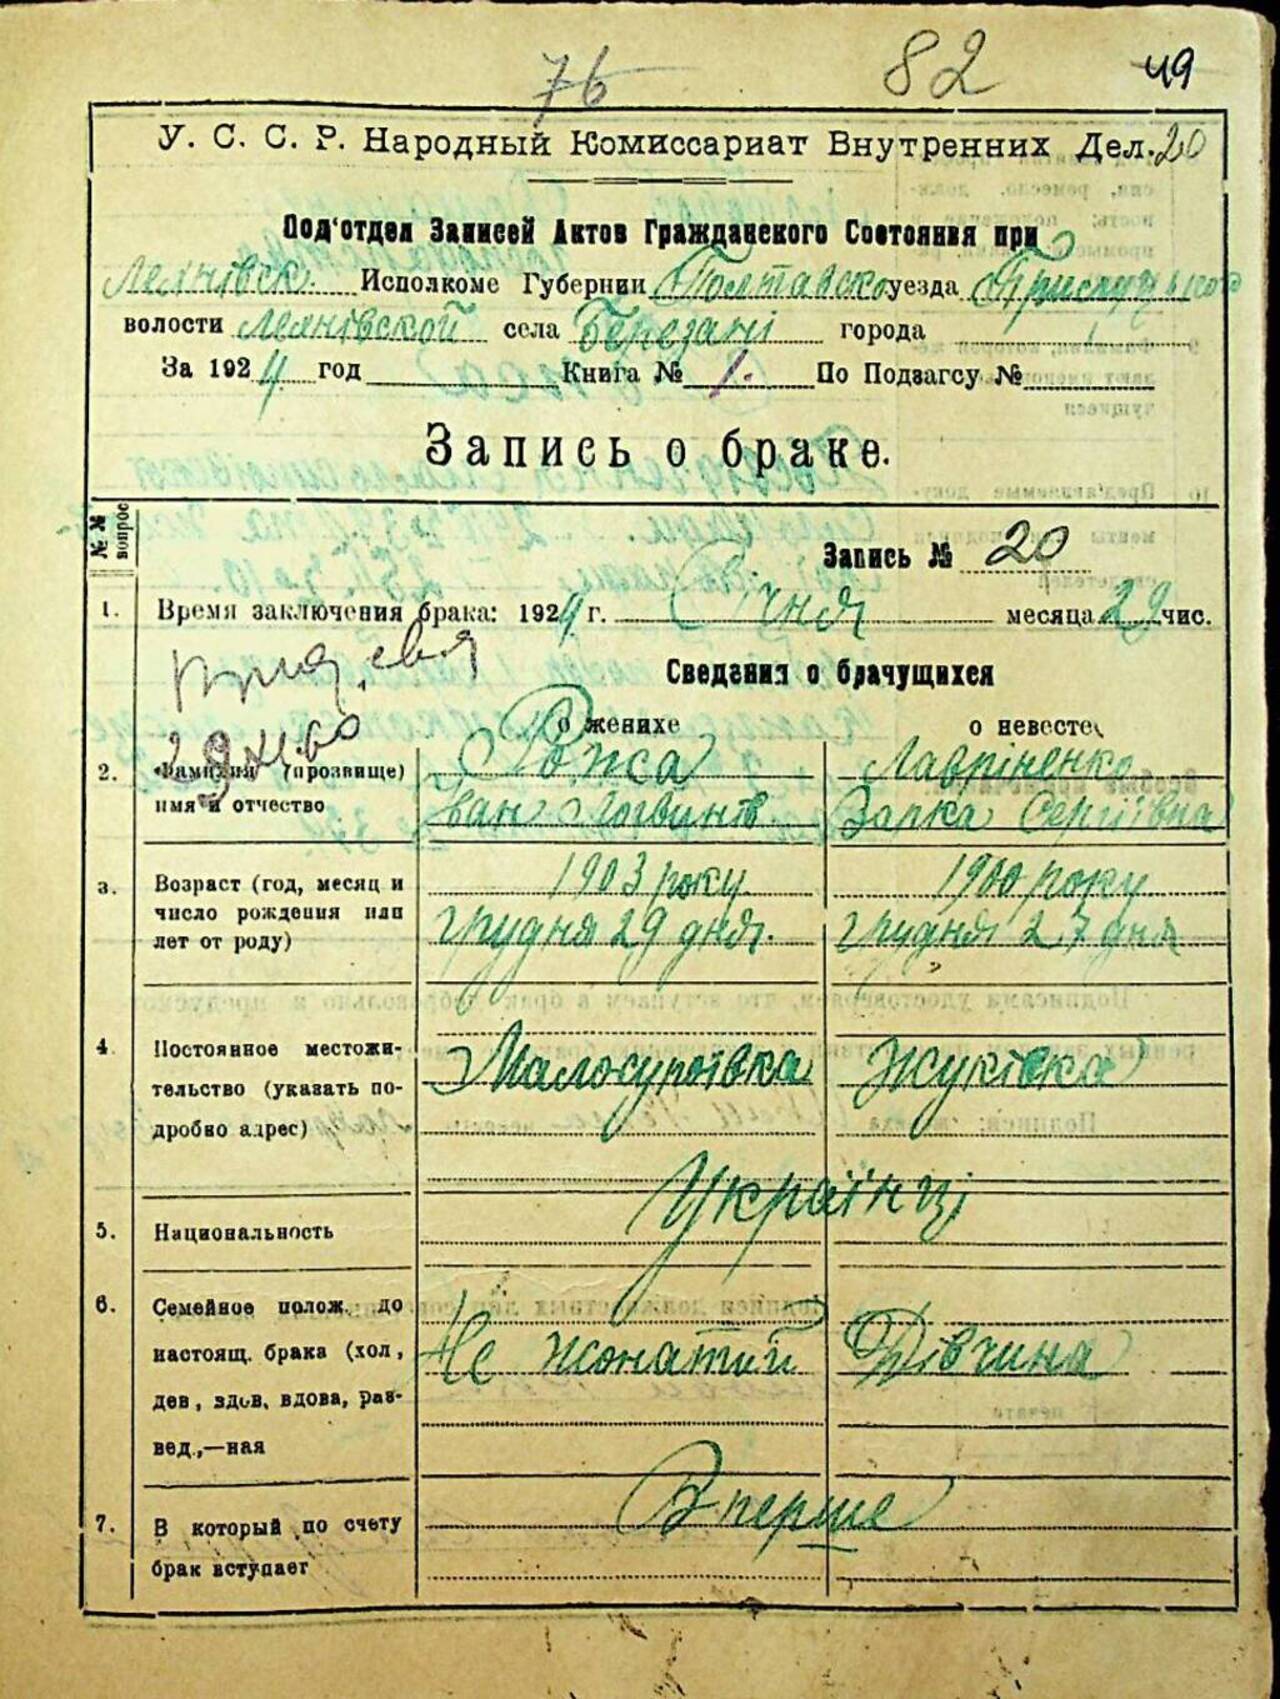 76 82 49
У. С. С. Р. Народный Комиссариат Внутренних Дел. 20
Под'отдел Записей Актов Гражданского Состояния при
Исполкоме Губернии Полтавско уезда
волости села Березані города
За 1924 год Книга № 1. По Подзагсу №
Запись о браке.
№ № вопрос
Запись № 20
1. Время заключения брака: 1924 г. Січня месяца 29 чис.
Сведения о брачущихся
о женихе о невесте
29 XI.60
2. Фамилия (прозвище) Рожа Лавріненко
имя и отчество Іван Логвинів Варка Сергіївна
3. Возраст (год, месяц и 1903 року 1900 року
число рождения или грудня 29 дня. грудня 27 дня
лет от роду)
4. Постоянное местожи- Малосуроївка Жуківка
тельство (указать по-
дробно адрес)
Українці
5. Национальность
6. Семейное полож. до
настоящ. брака (хол, Не жонатий Дівчина
дев, вдов, вдова, раз-
вед.,—ная
Вперше
7. В который по счету
брак вступает